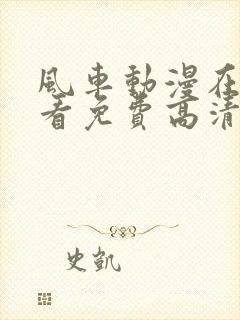 風車動漫在
看免費高清
史凱